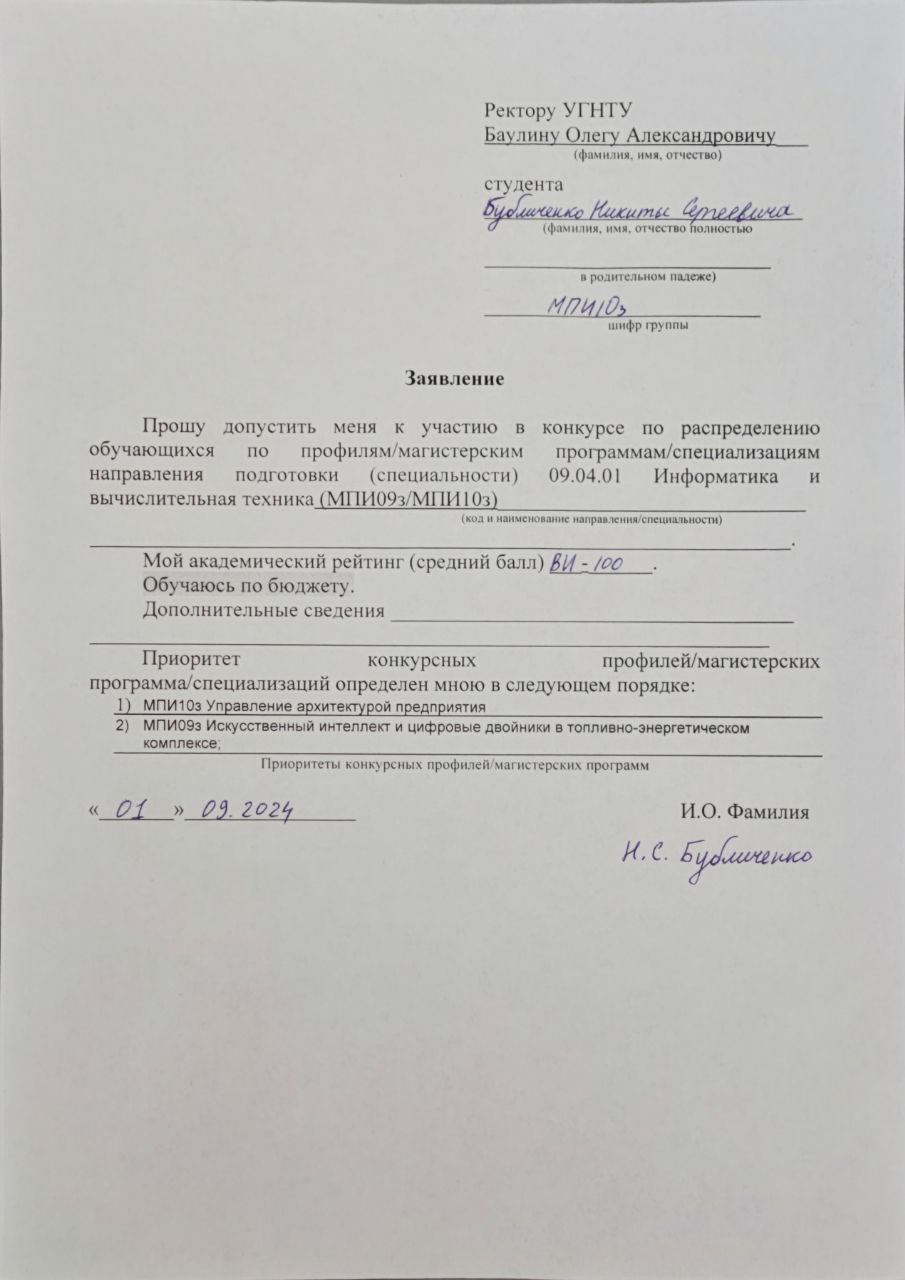 Ректору УГНТУ
Баулину Олегу Александровичу
(фамилия, имя, отчество)
студента
Бубличенко Никиты Сергеевича
(фамилия, имя, отчество полностью
в родительном падеже)
МПИ10з
шифр группы
Заявление
Прошу допустить меня к участию в конкурсе по распределению
обучающихся по профилям/магистерским программам/специализациям
направления подготовки (специальности) 09.04.01 Информатика и
вычислительная техника (МПИ09з/МПИ10з)
(код и наименование направления/специальности)
.
Мой академический рейтинг (средний балл) ВИ - 100.
Обучаюсь по бюджету.
Дополнительные сведения
Приоритет конкурсных профилей/магистерских
программа/специализаций определен мною в следующем порядке:
1) МПИ10з Управление архитектурой предприятия
2) МПИ09з Искусственный интеллект и цифровые двойники в топливно-энергетическом
комплексе;
Приоритеты конкурсных профилей/магистерских программ
« 01 » 09.2024 И.О. Фамилия
Н.С. Бубличенко